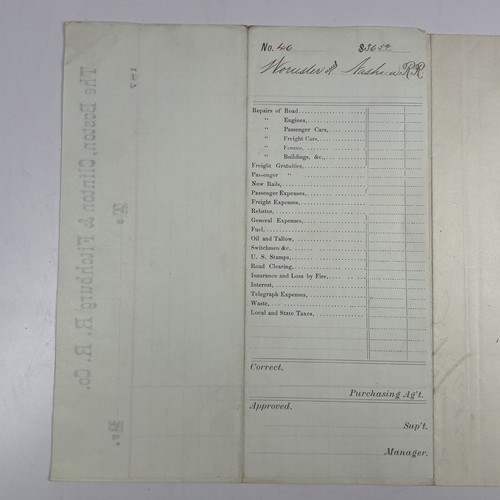 No. 46 $36 50
Worcester & Nashua R.R.
Repairs of Road
" Engines,
" Passenger Cars,
" Freight Cars,
" Fences,
" Buildings, &c.,
Freight Gratuities,
Passenger "
New Rails,
Passenger Expenses,
Freight Expenses,
Rebates,
General Expenses,
Fuel,
Oil and Tallow,
Switchmen &c.
U. S. Stamps,
Road Clearing,
Insurance and Loss by Fire,
Interest,
Telegraph Expenses,
Waste,
Local and State Taxes,
Correct.
Purchasing Ag't.
Approved.
Sup't.
Manager.
The Boston, Clinton & Fitchburg R. R. Co.
To
Dr.
187